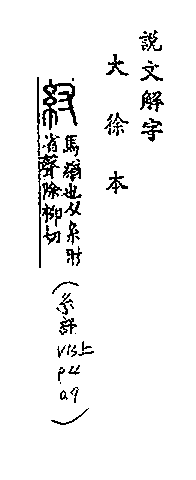 說文解字
大徐本
紂
馬緧也从糸肘
省聲除柳切
(糸部
V13上
P4
a.9)